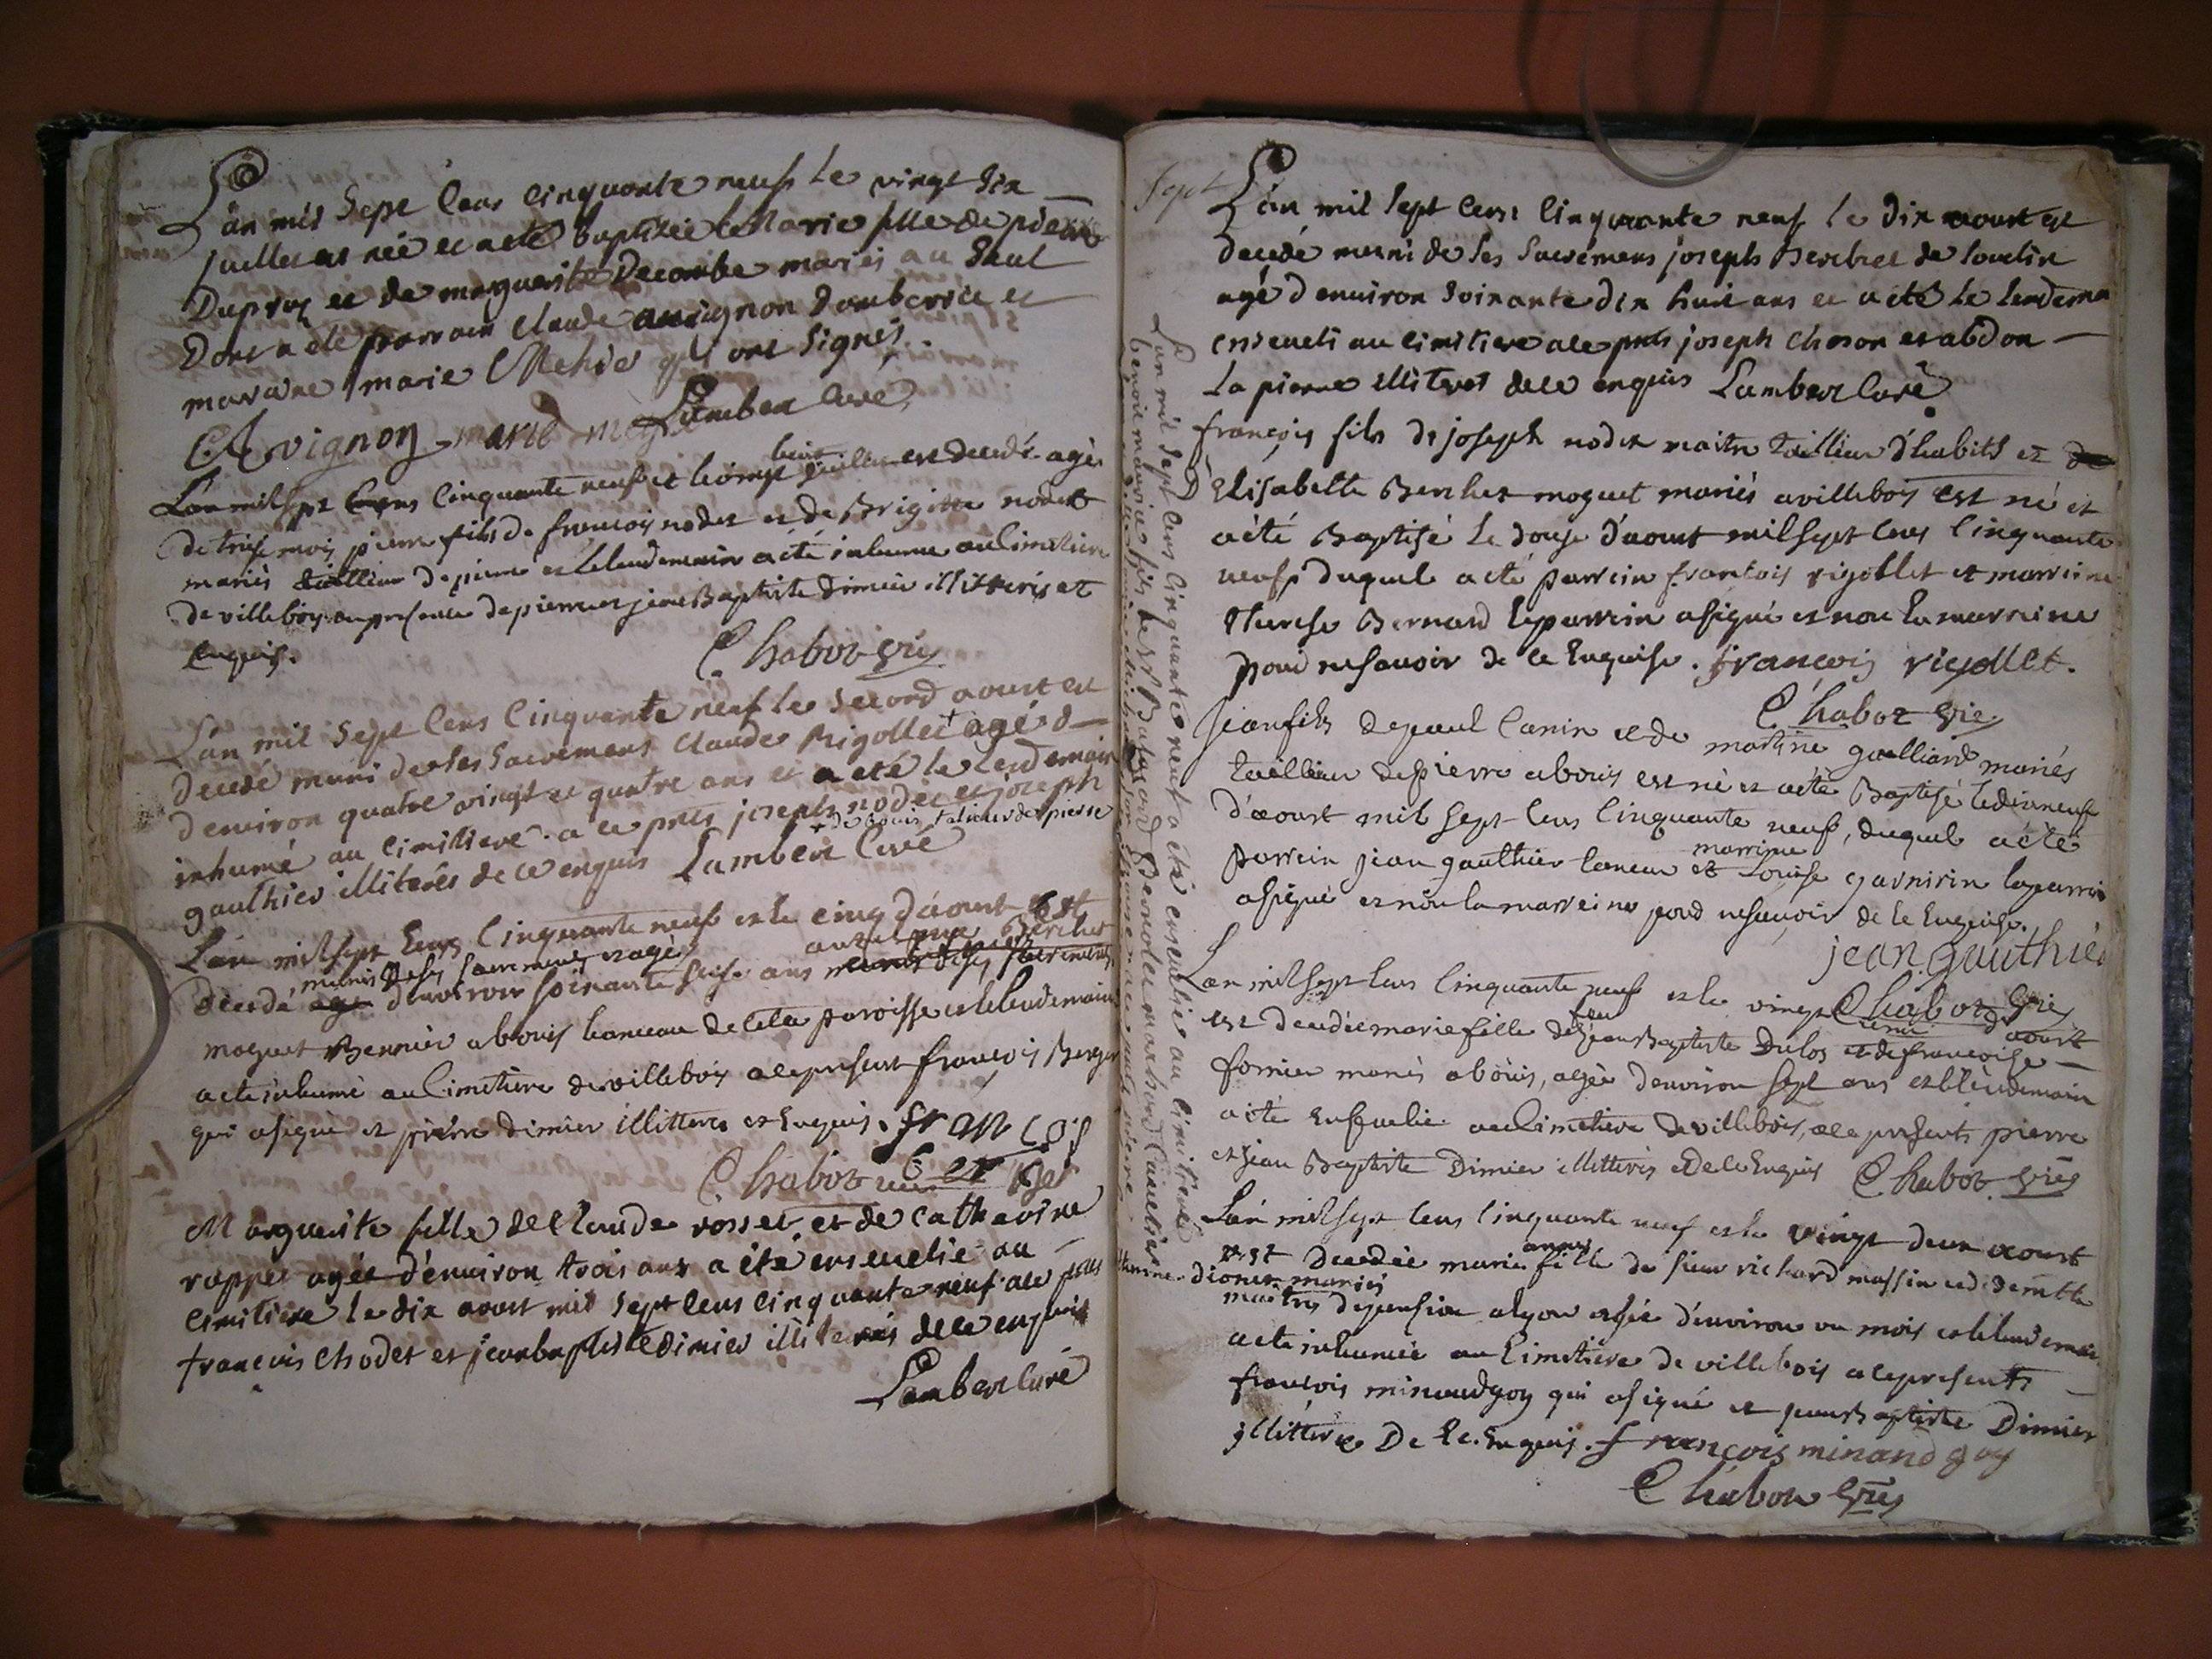 L'an mil Sept Cens Cinquante neuf Le vingt Six
juillet est née et a eté baptizée Marie fille de pierre
Dupras et de marguerite Decombe mariés au Saul
Dont a eté parrain Claude avignon Douberrie et
maraine marie Mehié qui ont Signés.
C Avignon marie Lambert Curé
L'an mil Sept Cens Cinquante neuf et le onze juillet est decedé agé
de treise mois pierre fils de francois nodet et de Brigitte nodet
mariés taillieur de pierre et le lendemain a eté inhumé au Cimetiere
de villebois en presence de pierre et jean Baptiste Dimier illitteris et
Enquis.
Chabot vic
L'an mil Sept Cens Cinquante neuf le Second aoust est
decedé muni de ses Sacremens Claude Rigollet + agé d
d'environ quatre vingt et quatre ans et a eté le lendemain
inhumé au Cimitiere a ce pnts joseph nodet et joseph
+ de bouis talieur de pierre
gaulthier illiterés de ce enquis Lambert Curé
L'an mil Sept Cens Cinquante neuf et le cinq d'aoust Est
decedé munis de ses sacremens et agé d'environ soixante seise ans Berchet
moguet Bennier a bouis hameau de cette paroisse et le lendemain
a eté inhumé au Cimetiere de villebois a ce present francois Berger
qui a signé et pierre dimier illitteres et Enquis. francois
Chabot vic Berger
Marguerite fille de Claude rosset et de Catherine
roppet agée d'environ trois ans a été ensevelie au
Cimitiere le dix aoust mil Sept Cens Cinquante neuf a ce pnts
francois Chodet et jean baptiste dimier illiterés de ce enquis
Lambert Curé
L'an mil Sept Cens Cinquante neuf a eté ensevelie au Cimitiere
benoit maurice fils de Sr
Sept
L'an mil Sept Cens Cinquante neuf le dix aoust est
decedé muni de ses Sacremens joseph Berchet de Souclin
agé d'environ Soixante dix huit ans et a eté le lendemain
enseveli au Cimitiere a ce pnts joseph Choson et abdon
la pierre illiteres de ce enquis Lambert Curé
françois fils de joseph nodet maitre taillieur d'habits et de
Elisabette Berchet moguet mariés a villebois est né et
a été Baptisé Le douze d'aoust mil Sept Cens Cinquante
neuf duquel a eté parrein francois rigollet et marreine
Therese Bernard le parrein a signé et non la marreine
pour ne savoir de ce Enquise. françois rigollet.
Chabot vic
jean fils de paul Canin et de martine gailliard mariés
taillieur de pierre a bouis est né et a eté Baptisé le dixneuf
d'aoust mil Sept Cens Cinquante neuf, duquel a eté
parrein jean gauthier taneur et marreine Louise garnirin le parrein
a signé et non la marreine pour ne savoir de ce Enquise.
jean gauthier
Chabot vic
L'an mil Sept Cens Cinquante neuf et le vingt aoust
est decedée marie fille de feu jean Baptiste Dulos et de francoise
fornier mariés a bouis, agée d'environ Sept ans et le lendemain
a eté Ensevelie au Cimetiere de villebois, a ce presents pierre
et jean Baptiste Dimier illitteris et de ce Enquis Chabot vic
L'an mil Sept Cens Cinquante neuf et le vingt deux aoust
est decedée marie anne fille de Sieur richard massin et de demlle
dionet mariés
maitres de pension a lyon agée d'environ un mois et le lendemain
a eté inhumée au Cimetiere de villebois a ce presents
francois minaudgoy qui a signé et jean Baptiste Dimier
jllitteres De Ce Enquis. françois minand goy
Chabot vic